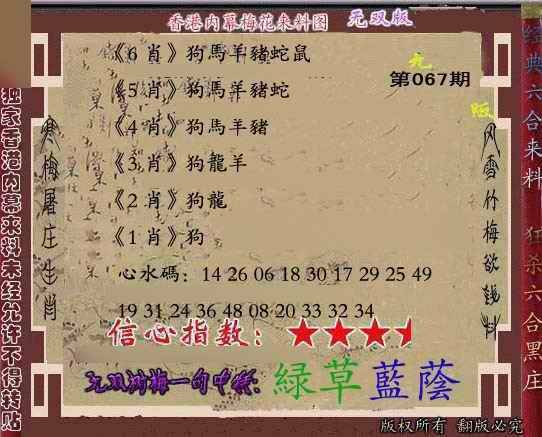 香港内幕梅花来料图 无双版
《6 肖》狗馬羊豬蛇鼠
第067期
《5 肖》狗馬羊豬蛇
《4 肖》狗馬羊豬
《3 肖》狗龍羊
《2 肖》狗龍
《1 肖》狗
心水碼：14 26 06 18 30 17 29 25 49
19 31 24 36 48 08 20 33 32 34
信心指数：
一句中特：綠草藍蔭
版权所有 翻版必究
独家香港内幕来料未经允许不得转贴
寒梅屠庄生肖
风雪竹梅欲钱料
经典六合来料
狂杀六合黑庄